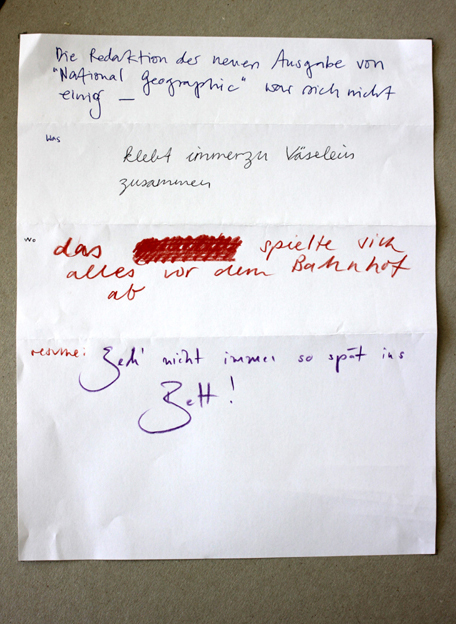 Die Redaktion der neuen Ausgabe von
"National Geographic" war sich nicht
einig _
was
klebt immerzu Väselein
zusammen
wo
das spielte sich
alles vor dem Bahnhof
ab
resumé: Geh' nicht immer so spät ins
Bett!